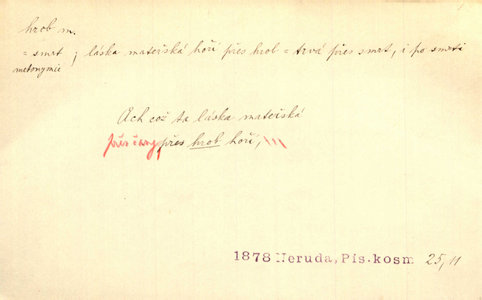 hrob m.
= smrt ; láska mateřská hoří přes hrob = trvá přes smrt, i po smrti
metonymie
Ach což ta láska mateřská
přes hrob hoří,
1878 Neruda, Pís. kosm 25, 11